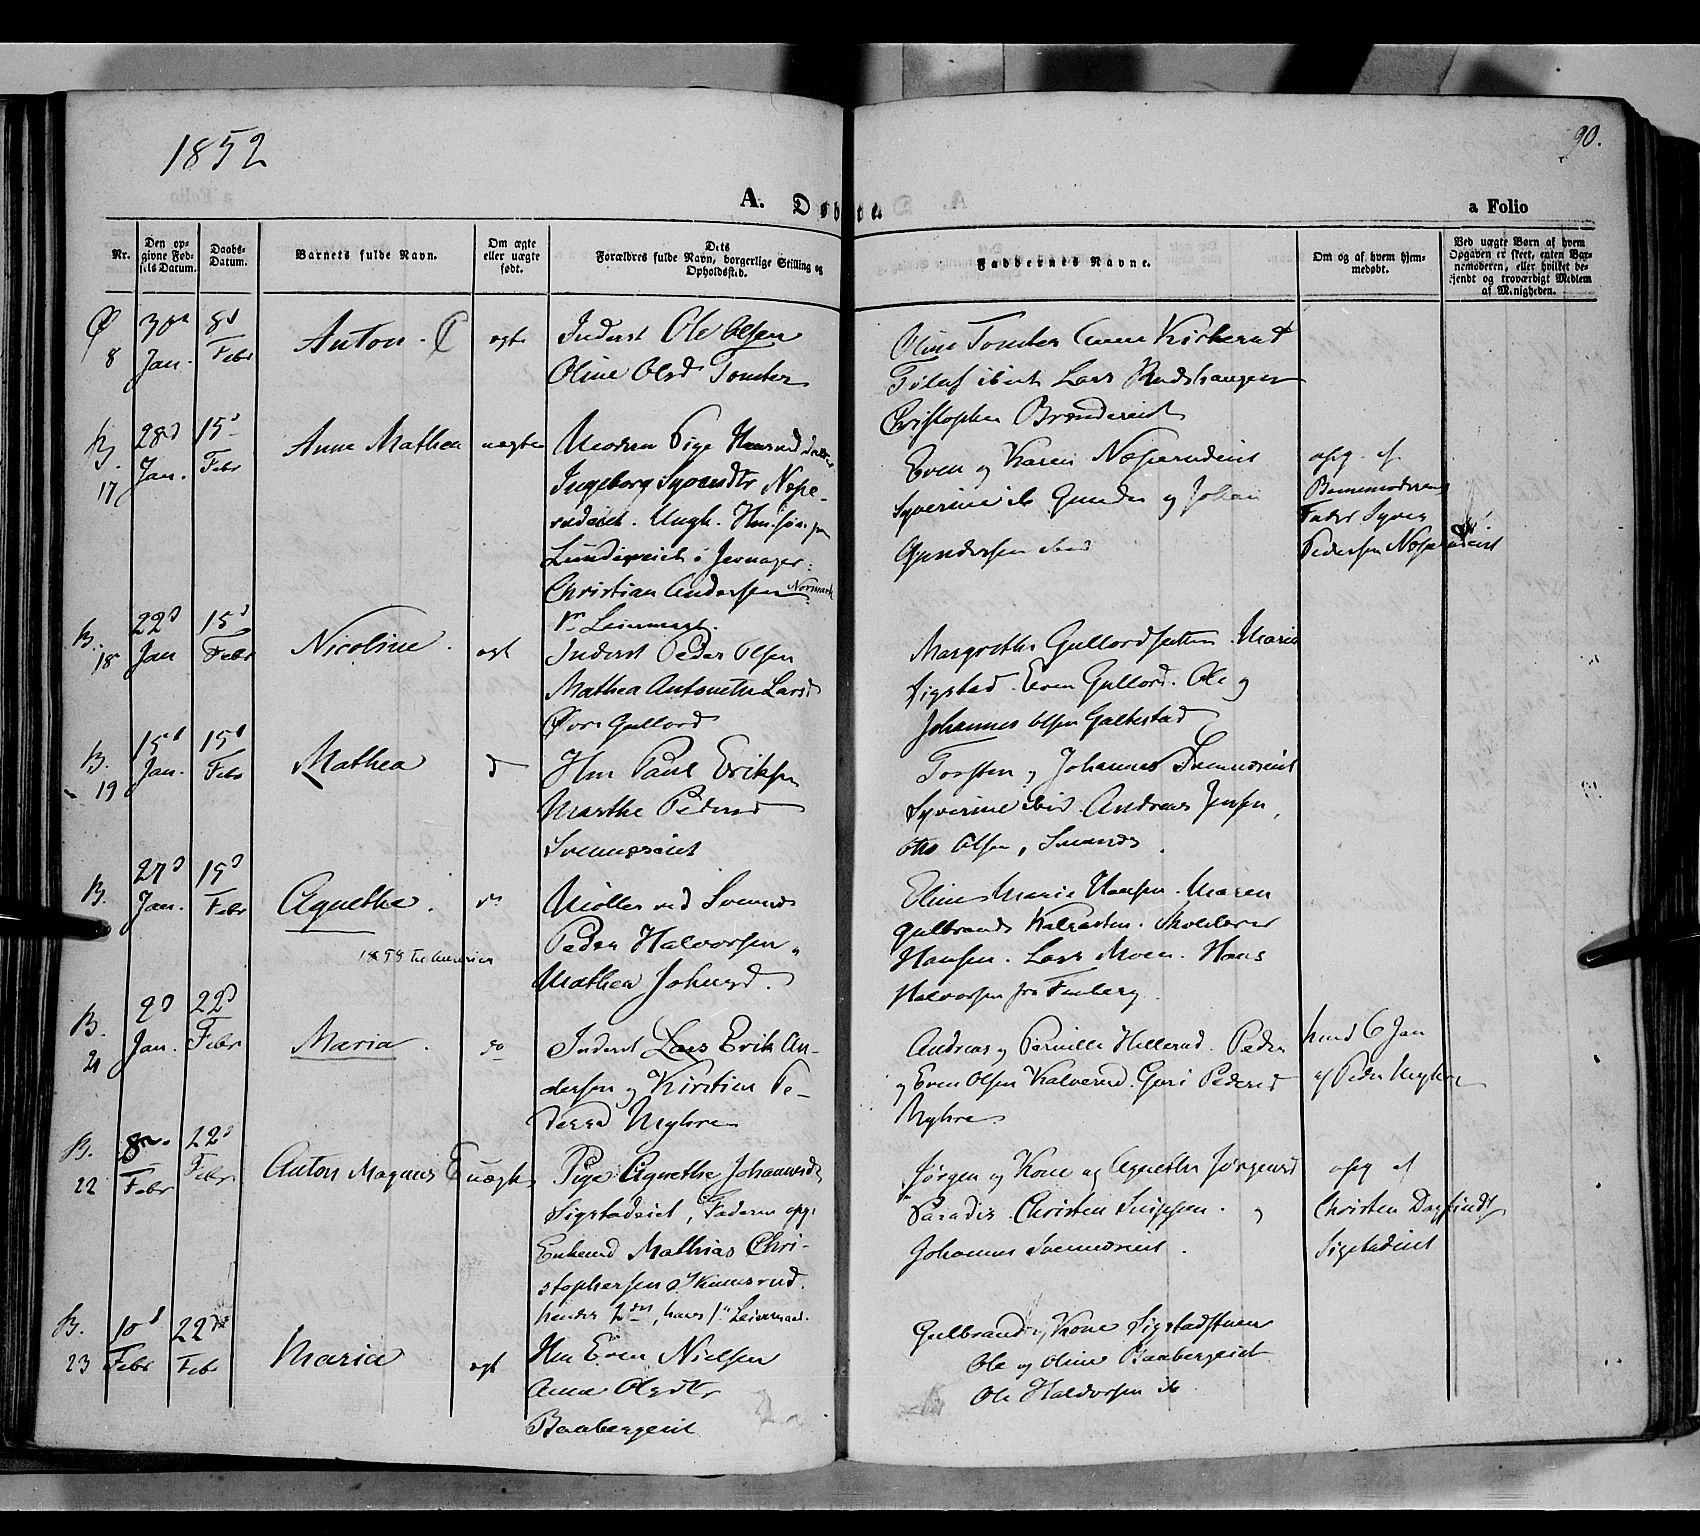 1852
90.
A. Døbte.
a Folio
Nr.
Den op-
givne Fød-
sels Datum.
Daabs-
Datum.
Barnets fulde Navn.
Om ægte
eller uægte
født.
Dets
Forældres fulde Navn, borgerlige Stilling og
Opholdssted.
Faddernes Navne.
Om og af hvem hjem-
medøbt.
Ved uægte Børn af hvem
Opgaven er skeet, enten Bar-
nemoderen, eller hvilket be-
kjendt og troværdigt Medlem
af Menigheden.
8
Jan.
8d
Febr
Anton
ægte
Inderst Ole Olsen
Oline Olsd Tomter
Oline Tomter Anne
ibid Lars
Christopher
B.
17
28d
Jan.
15d
Febr
Anne Mathea
uægte
Moderen Pige
Ingeborg Syversdtr
Ungk.
i Jevnager
Christian Andersen
1ste Leiermaal.
Even og Karen
Syverine ib Gunder og Johan
Gundersen ibid
opg. af
Barnemoderens
Fader Syver
Pedersen
B.
18
22d
Jan
15d
Febr
Nicoline
ægt
Inderst Peder Olsen
Mathea Antonette Larsd
Øvre Gullord
Margrethe Maria
Sigstad. Even Gullord. Ole og
Johannes Olsen
B.
19
15d
Jan.
15d
Febr
Mathea
d
Hm Paul Eriksen
Marthe Pedersd
Svennæseiet
Torsten og Johannes Svennæseiet
Syverine ibid. Andreas Jensen,
Otto Olsen, Svennæs
B.
27d
Jan.
15d
Febr
Agnethe.
do
1858 til America
Møller ved Svennæs
Peder Halvorsen
Mathea Johnsd.
Eline Marie Hansen. Maren
Gulbrands
Hansen. Lars Moen. Hans
Halvorsen fra
B.
21
2d
Jan.
22d
Febr
Maria.
do
Inderst Lars Erik An-
dersen og Kirstine Pe-
dersd Myhre
Andreas og Pernille Hillerud. Peder
og Even Olsen Kalverud. Guri Pedersd
Myhre
hjemd 6 Jan
af Peder Myhre
B.
22
8de
Febr
22d
Febr
Anton Magnus
uægte
Pige Agnethe Johannesd
Sigstadeiet, Faderen opg.
Enkemd Mathias Chri-
stophersen
hendes 2det, hans 1ste Leiermaal.
Jørgen og Kone og Agnethe Jørgensd
Paradis. Christen og
Johannes Svennæseiet.
opg af
Christen
Sigstadeiet
B.
23
10d
Febr
22de
Febr
Maria
ægt
Hm Even Nielsen
Anne Olsdtr
Baabergeiet
Gulbrand og Kone Sigstadstuen
Ole og Oline Baabergeiet
Ole Haldorsen ib